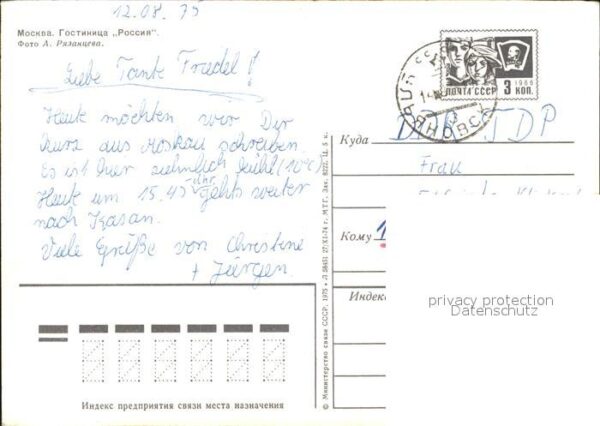 12.08.75
Москва. Гостиница „Россия".
Фото А. Рязанцева.
Liebe Tante Friedel!
Heute möchten wir Dir
kurz aus Moskau schreiben.
Es ist hier ziemlich kühl (10°C)
Heute um 15.45 Uhr gehts weiter
nach Kasan.
Viele Grüße von Christine
+ Jürgen.
ПОЧТА СССР
1966
3 КОП.
Куда DDR ГДР
Frau
Кому
Индекс
privacy protection
Datenschutz
Индекс предприятия связи места назначения
© Министерство связи СССР. 1975
27/XI-74 г. МТГ. Зак. 8222. Ц. 5 к.